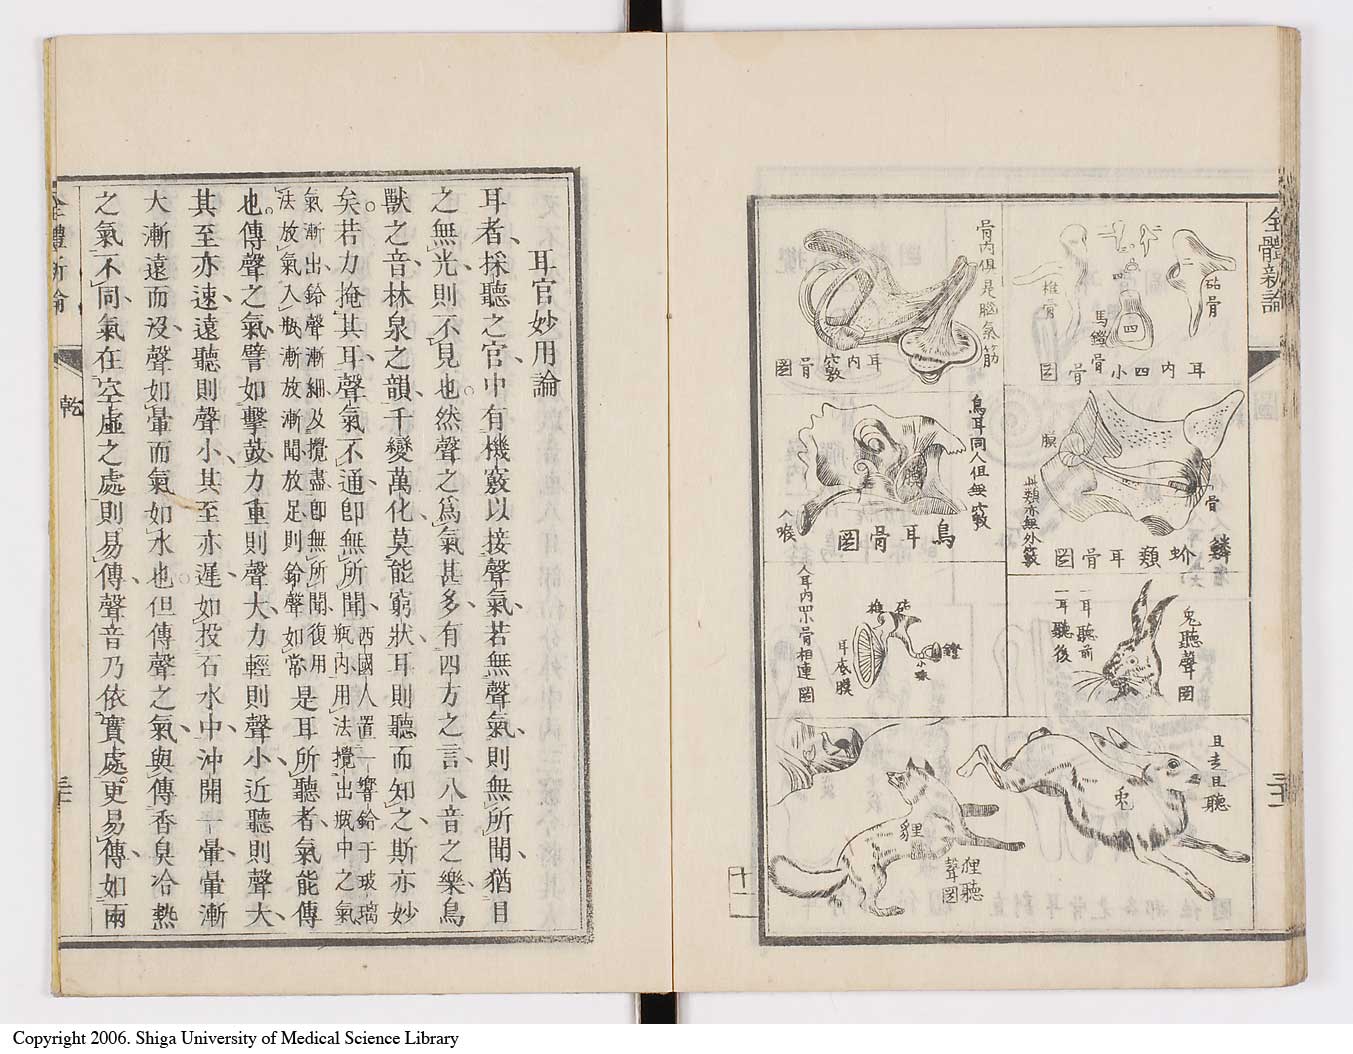 全體新論
砧骨
馬鐙骨
四
椎骨
耳内四小骨圖
骨内俱是腦氣筋
耳内竅骨圖
骨
膜
此類亦無外竅
鱗介類耳骨圖
鳥耳同人但無竅
膜
入喉
鳥耳骨圖
兔聽聲圖
一耳聽前
一耳聽後
人耳内四小骨相連圖
砧
椎
耳底膜
鐙
且走且聽
兔
狸
狸聽聲圖
耳官妙用論
耳者採聽之官中有機竅以接聲氣若無聲氣則無所聞猶目
之無光則不見也然聲之爲氣甚多有四方之言八音之樂鳥
獸之音林泉之韻千變萬化莫能窮狀耳則聽而知之斯亦妙
矣若力掩其耳聲氣不通卽無所聞西國人置一響鈴于玻璃瓶内用法攪出瓶中之氣
氣漸出鈴聲漸細及攪盡卽無所聞復用法放氣入瓶漸放漸聞放足則鈴聲如常是耳所聽者氣能傳
也傳聲之氣譬如擊鼓力重則聲大力輕則聲小近聽則聲大
其至亦速遠聽則聲小其至亦遲如投石水中沖開一暈暈漸
大漸遠而沒聲如暈而氣如水也但傳聲之氣與傳香臭冶熱
之氣不同氣在空虛之處則易傳聲音乃依實處更易傳如兩
全體新論
乾